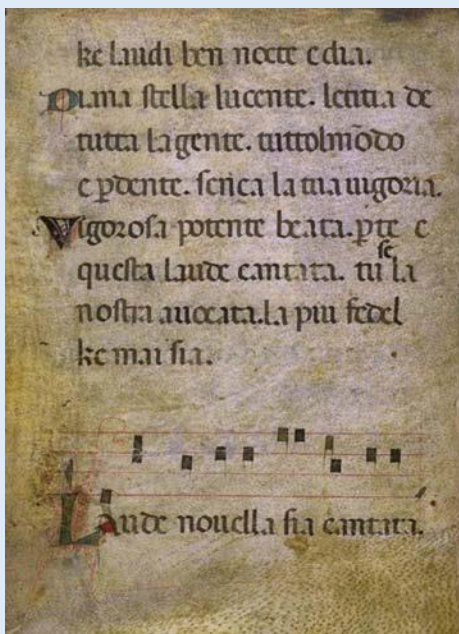 ke laudi ben nocte e dia.
Diana stella lucente. letitia de
tutta la gente. tuttolmōdo
e ꝑdente. sença la tua uigoria.
Vigorosa potente beata. ꝑte e
questa laude cantata. tu se la
nostra auocata. la piu fedel
ke mai sia.
Laude nouella sia cantata.